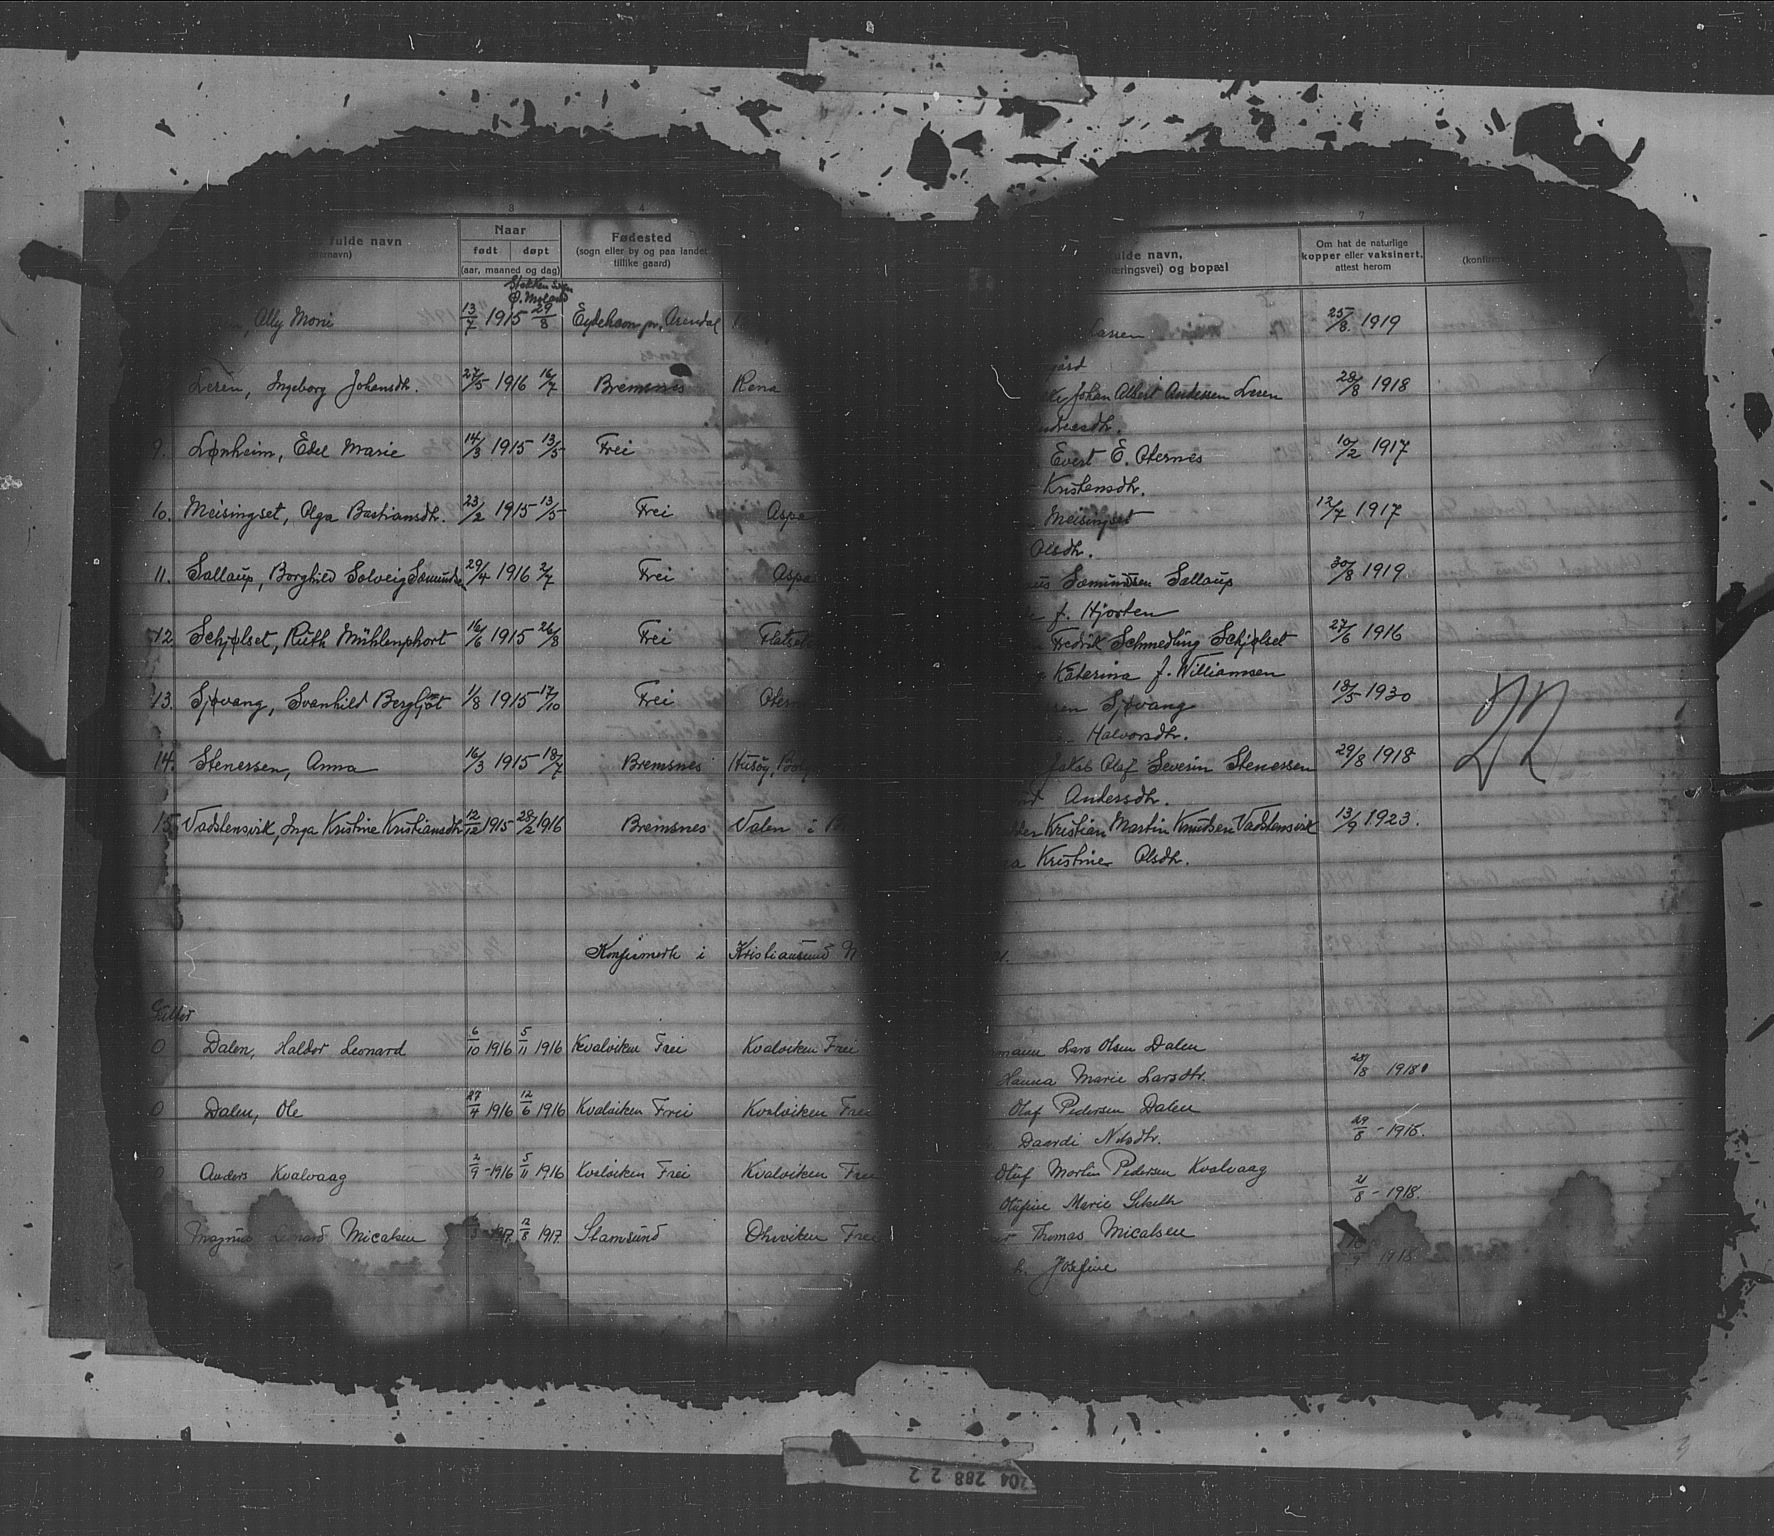 3 4 7
fulde navn
Naar
født døpt
(aar, maaned og dag)
Fødested
(sogn eller by og paa landet
tillike gaard)
fulde navn,
næringsvei) og bopæl
Om hat de naturlige
kopper eller vaksinert,
attest herom
(konfirm
Ø. Moland
Ally Moni 13/7 1915 29/8 Eydehavn pr. Arendal 25/8 1919
Leren, Ingeborg Johansdtr. 27/5 1916 16/7 Bremsnes Rena Johan Albert Andersen Leren 28/8 1918
9. Lønheim, Edel Marie 14/3 1915 13/5 Frei Evert E. Oternes 10/2 1917
Kristensdtr.
10. Meisingset, Olga Bastiansdtr. 23/2 1915 13/5 Frei Aspe Meisingset 12/7 1917
Olsdtr.
11. Sallaup, Borghild Solveig 29/4 1916 2/7 Frei Aspe Sæmundsen Sallaup 30/8 1919
f. Hjorten
12. Schjølset, Ruth Mühlenphort 16/6 1915 26/8 Frei Flatset Fredrik Schmedling Schjølset 27/6 1916
Katerina f. Williamsen
13. Sjøvang, Svanhild Bergljot 1/8 1915 17/10 Frei Otern Sjøvang 18/5 1930
Halvorsdtr.
14. Stenersen, Anna 16/3 1915 18/7 Bremsnes Husøy, Jakob Olaf Severin Stenersen 29/8 1918
Andersdtr.
15. Vadstensvik, Inga Kristine Kristiansdtr 12/12 1915 28/2 1916 Bremsnes Valen i Kristian Martin Knudsen Vadstensvik 13/9 1923.
Kristine Olsdtr.
Konfirmert i Kristiansund N
Gutter
0 Dalen, Haldor Leonard 6/10 1916 5/11 1916 Kvalviken Frei Kvalviken Frei Lars Olsen Dalen
Hanna Marie Larsdtr. 28/8 1918
0 Dalen, Ole 27/4 1916 12/6 1916 Kvalviken Frei Kvalviken Frei Olaf Pedersen Dalen
Daardi Nilsdtr. 29/8 - 1916.
0 Anders Kvalvaag 2/9 - 1916 5/11 1916 Kvalviken Frei Kvalviken Frei Oluf Martin Pedersen Kvalvaag
Olufine Marie 21/8 - 1918.
Magnus Leonard Micalsen 1917 12/8 1917. Stamsund Ohrviken Frei Thomas Micalsen
Josefine 1918
704 288 2 2